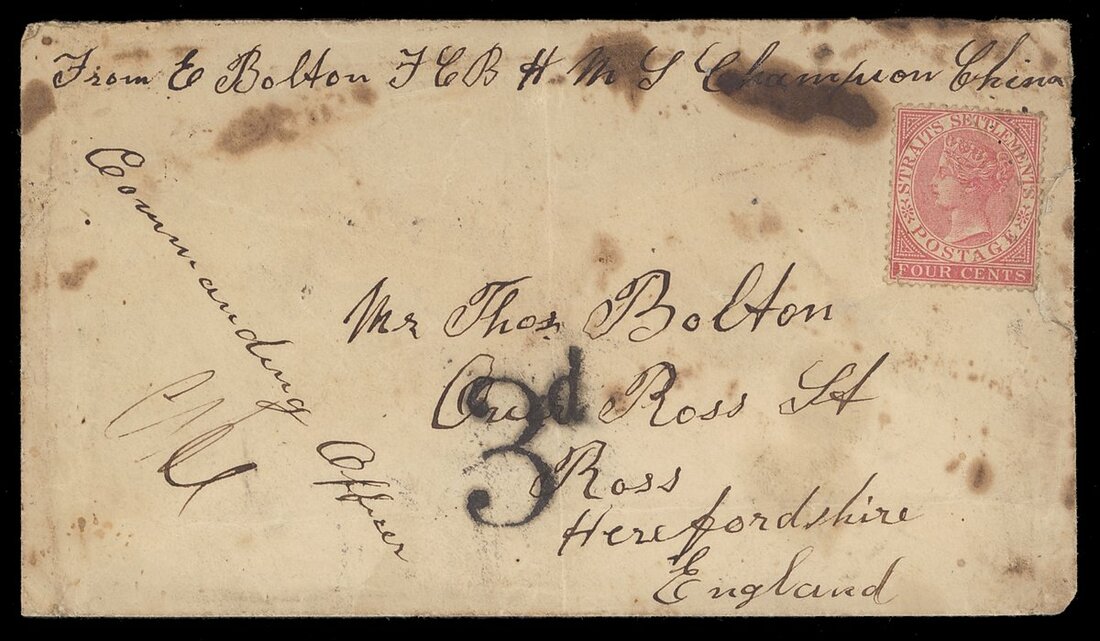 From E Bolton F C B H M S Champion China
STRAITS SETTLEMENTS
POSTAGE
FOUR CENTS
Commanding Officer
Mr Thos Bolton
Over Ross St
Ross
Herefordshire
England
3d